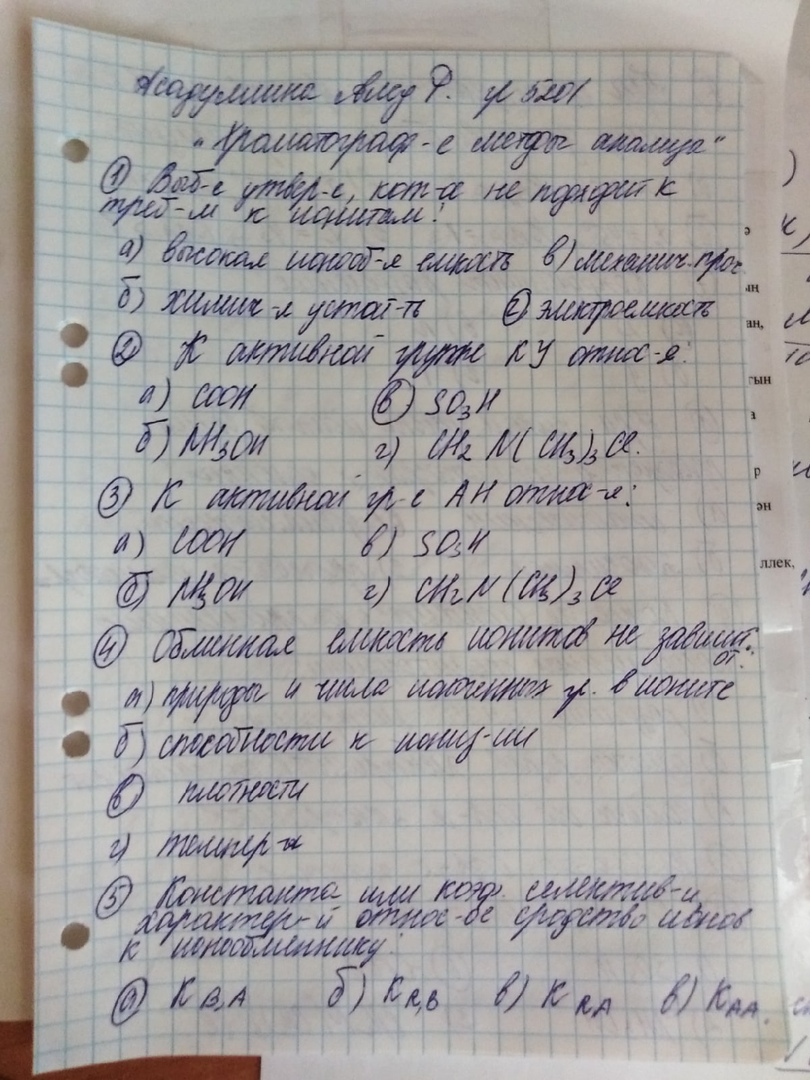 Асадуллина Алсу Р. гр 5201
"Хроматограф-е методы анализа"
① Выб-е утвер-е, кот-ое не подходит к
треб-м к ионитам:
а) высокая ионооб-я емкость в) механич. проч
б) химич-я устой-ть г) электроемкость
② К активной группе КУ относ-я:
а) COOH в) SO3H
б) NH3OH г) CH2 N(CH3)3Cl.
③ К активной гр-е АН относ-я:
а) COOH в) SO3H
б) NH3OH г) CH2N(CH3)3Cl
④ Обменная емкость ионитов не зависит
от:
а) природы и числа ионогенных гр. в ионите
б) способности к иониз-ии
в) плотности
г) темпер-ы
⑤ Константа или коэф. селектив-и,
характер-й относ-ое сродство ионов
к ионообменнику:
а) K B,A б) K R,B в) K RA в) K AA.
ын
ан,
гын
а
р
ән
ллек,